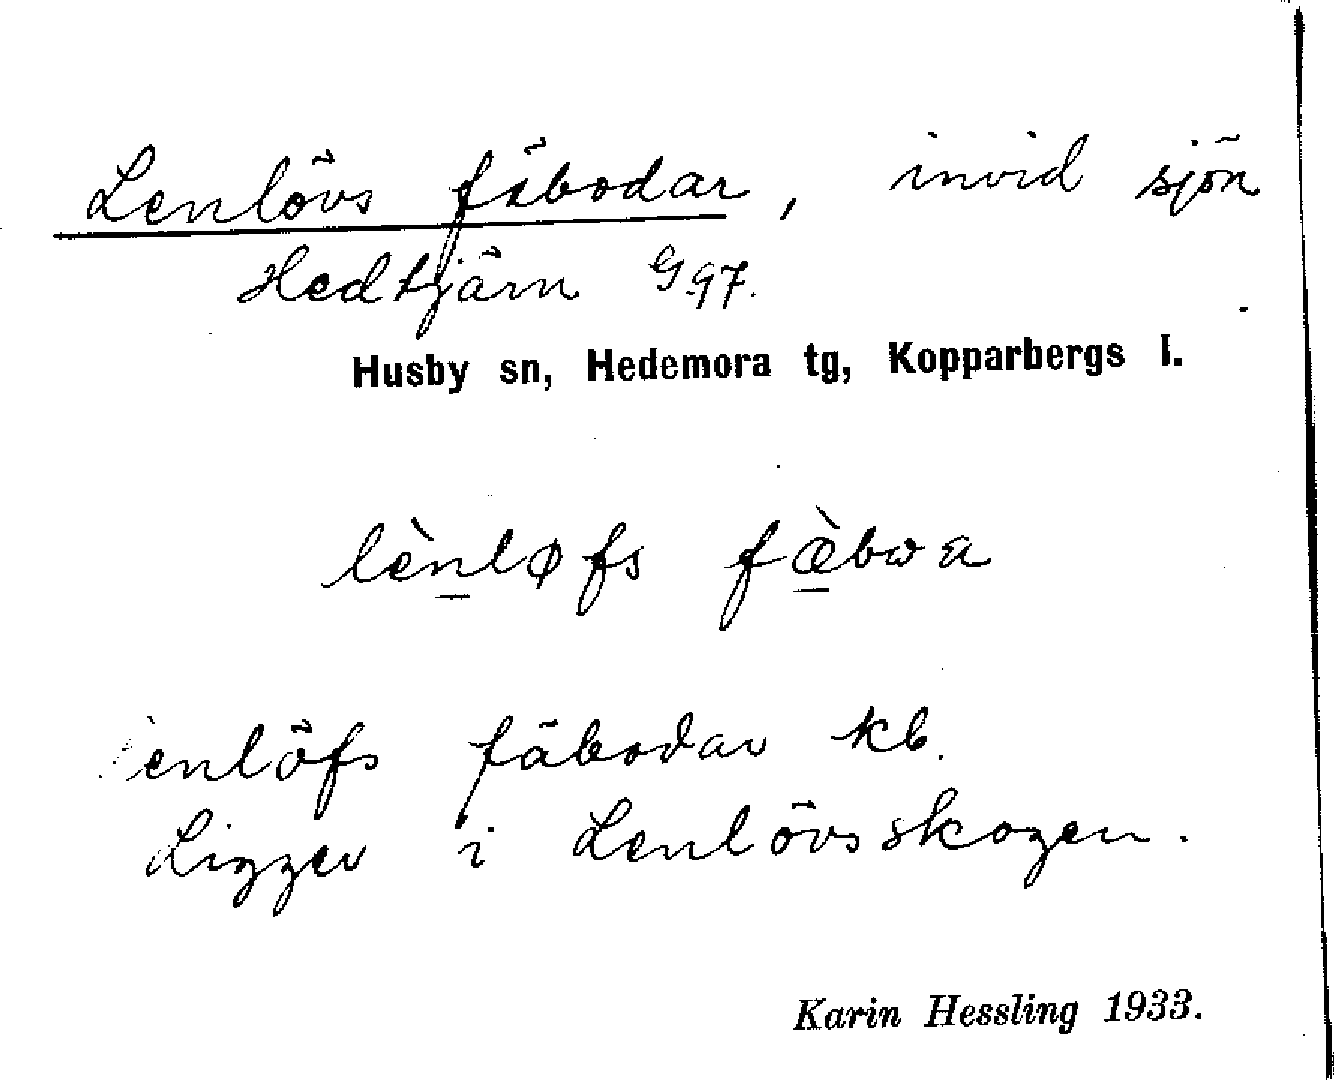 Lenlövs fäbodar, invid sjön
Hedtjärn G 97.
Husby sn, Hedemora tg, Kopparbergs l.
lènløfs fæ̀bωa
Lenlöfs fäbodar kb.
Ligger i Lenlövsskogen.
Karin Hessling 1933.